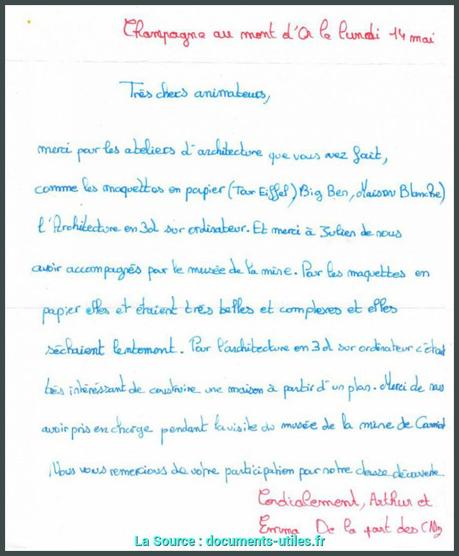 Champagne au mont d'Or le lundi 14 mai
Très chers animateurs,
merci pour les ateliers d'architecture que vous avez fait,
comme les maquettes en papier (Tour Eiffel) Big Ben, Maison Blanche)
l'Architecture en 3d sur ordinateur. Et merci à Julien de nous
avoir accompagnés par le musée de la mine. Pour les maquettes en
papier elles et étaient très belles et complexes et elles
séchaient lentement. Pour l'architecture en 3d sur ordinateur c'était
très intéréssant de construire une maison à partir d'un plan. Merci de nous
avoir pris en charge pendant la visite du musée de la mine de
Nous vous remercions de votre participation pour notre classe découverte
Cordialement, Arthur et
Emma De la part des CM2
La Source : documents-utiles.fr